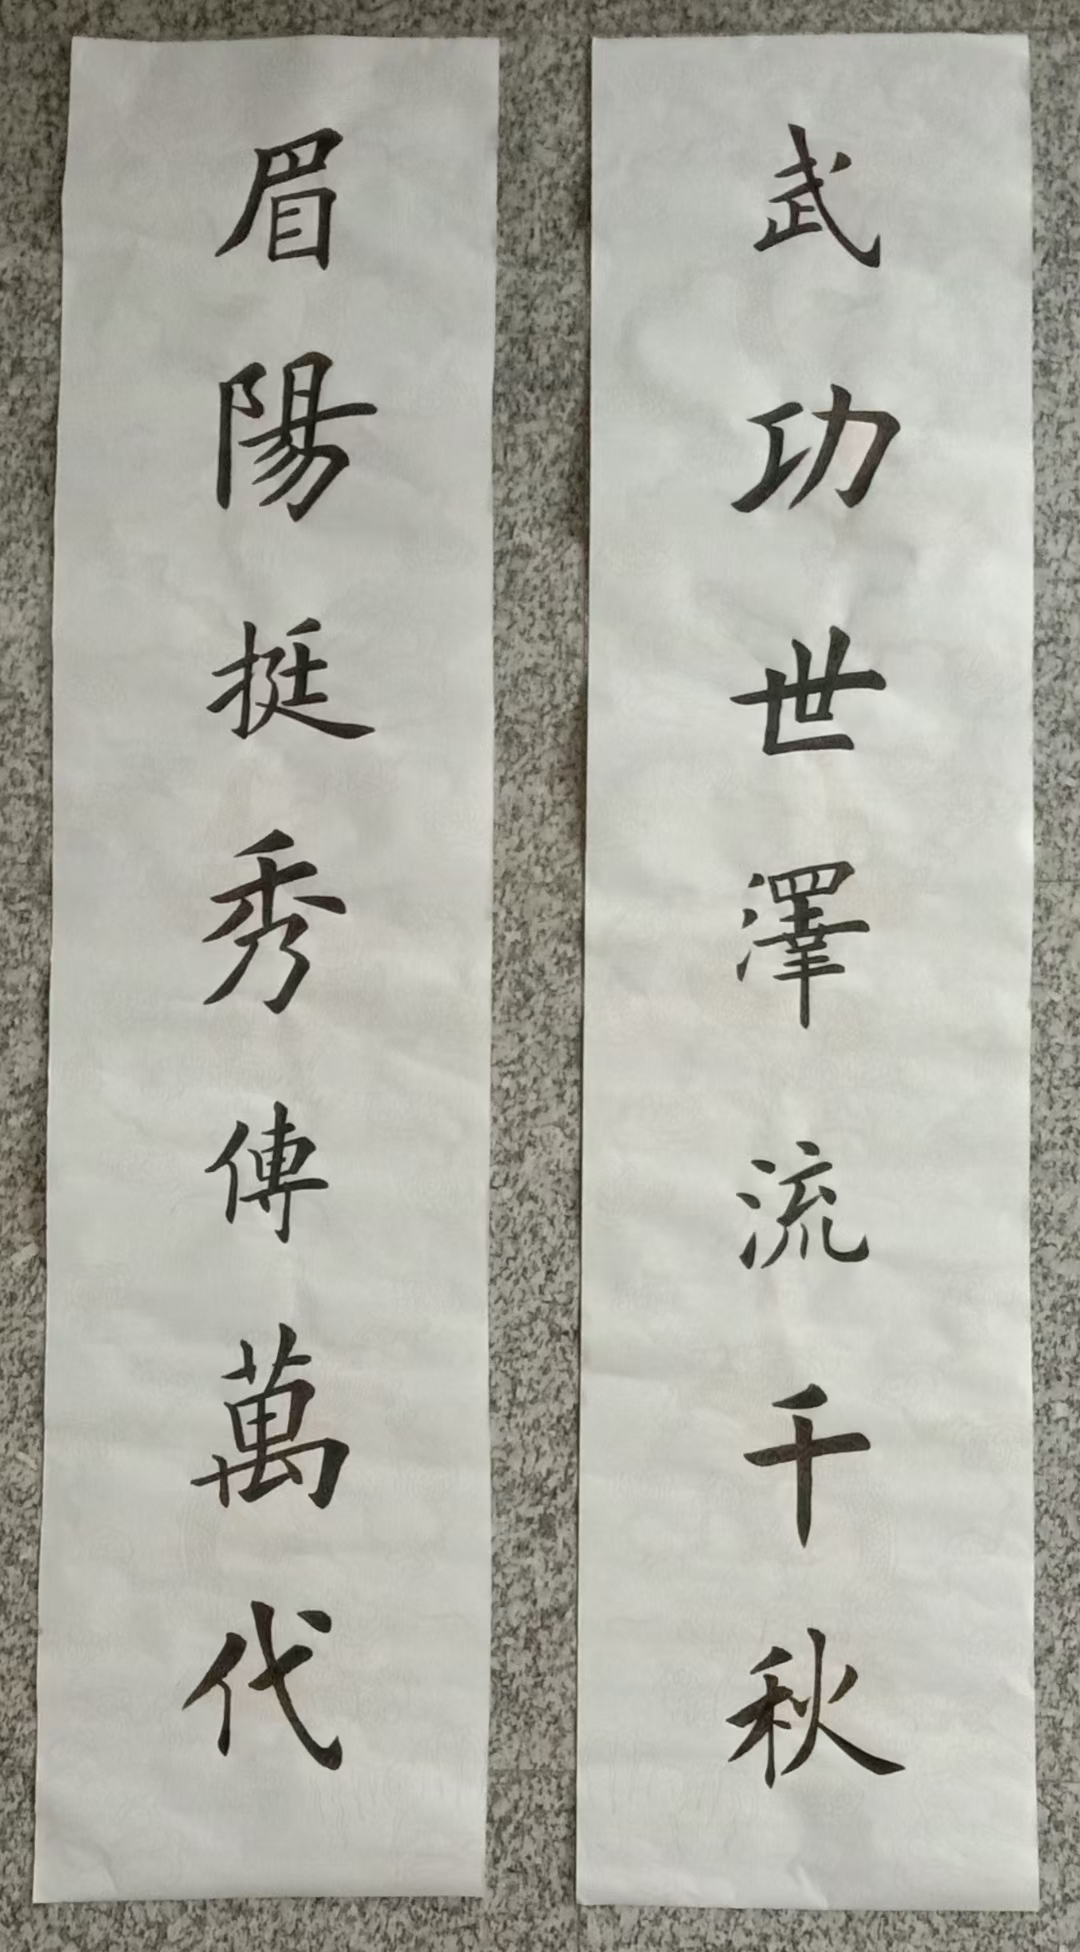 武功世澤流千秋
眉陽挺秀傳萬代